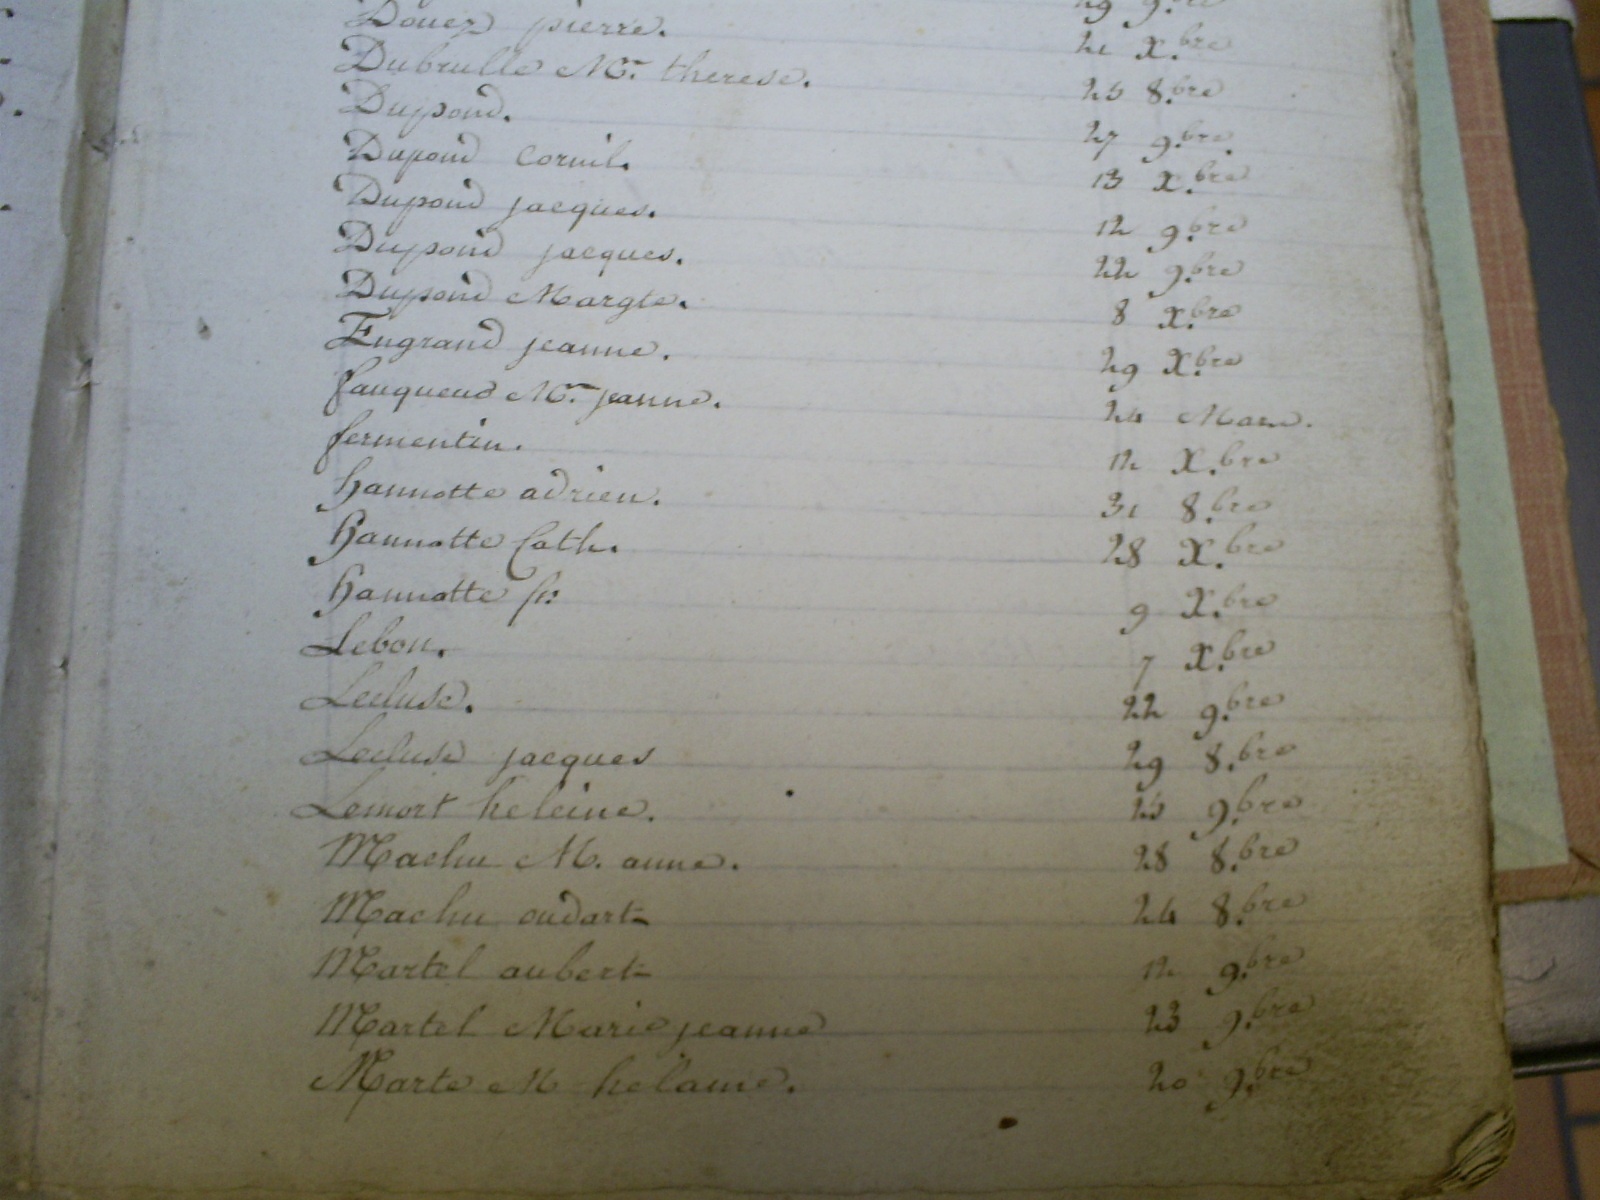 Douez pierre. 29 9.bre
Dubrulle Mr. therese. 21 X.bre
Dupond. 25 8.bre
Dupond Cornil. 27 9.bre.
Dupond jacques. 13 X.bre
Dupond jacques. 12 9.bre
Dupond Margte. 22 9.bre
Engrand jeanne. 8 X.bre
fauqueud Mr. jeanne. 29 X.bre
fermentin. 24 Mars.
hannotte adrien. 12 X.bre
hannotte Cath. 31 8.bre
hannotte fr: 28 X.bre
Lebon. 9 X.bre
Lecluse. 7 X.bre
Lecluse jacques 22 9.bre
Lemort heleine. 29 8.bre
Machu M. anne. 25 9.bre
Machu oudart 28 8.bre
Martel aubert 24 8.bre
Martel Marie jeanne 12 9.bre
Marte M helaine. 23 9.bre
20 9.bre